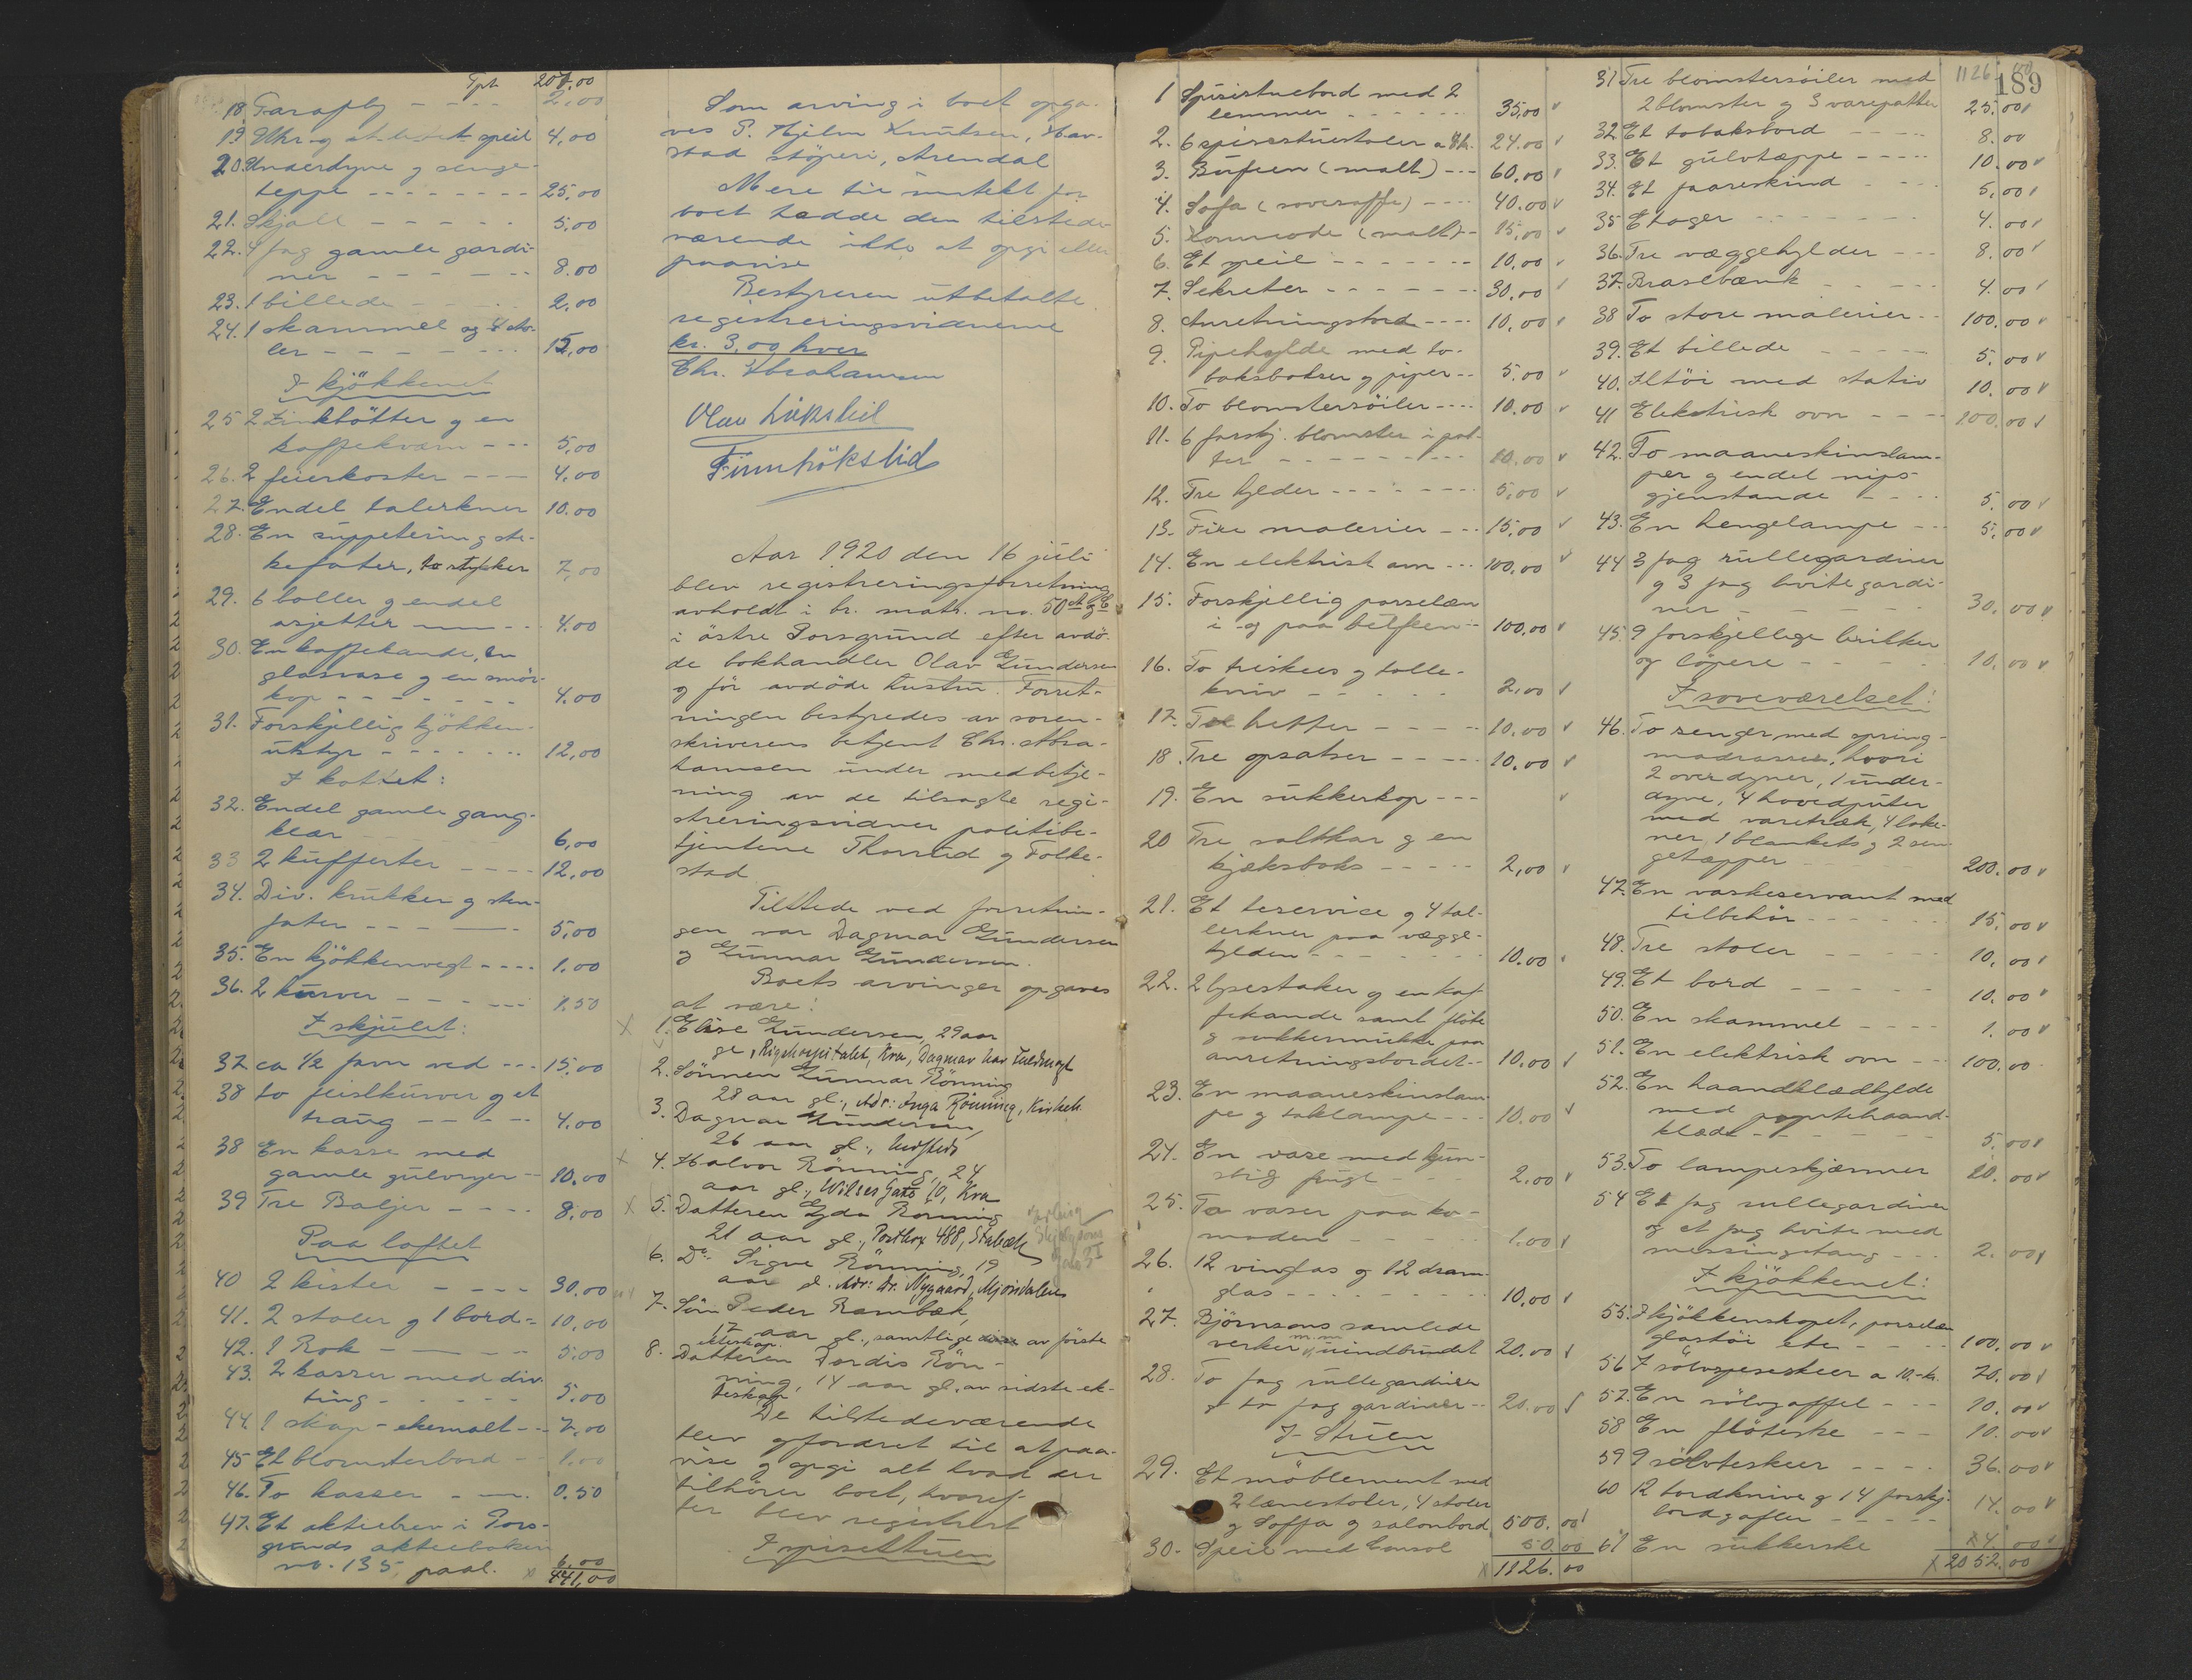 Tpt. 207,00
18. Paraply - - - - 2,00
19. Uhr og et litet speil 4,00
20. Underdyne og senge-
teppe - - - - - - - 25,00
21. Skjall - - - - - 5,00
22. 4 fag gamle gardi-
ner - - - - - 8.00
23. 1 billede - - - - 2,00
24. 1 skammel og 4 sto-
ler - - - - - - - 15,00
I kjökkenet
25 2 zinkbötter og en
kaffekværn - - - 5,00
26. 2 feierkoster - - - 4,00
27. Endel talerkner 10.00
28. En suppeterin og ste-
kefater, to stykker 7,00
29. 6 boller og endel
asjetter - - - 4.00
30. En kaffekande, en
glasvase og en smör-
kop - - - - - - 4.00
31. Forskjellig kjökken-
utstyr - - - - - - 12,00
I kottet:
32. Endel gamle gang-
klær 6,00
33 2 kufferter - - - - 12,00
34. Div. krukker og sten-
fater - - - - 5,00
35. En kjökkenvegt - - - - 1.00
36. 2 kurver - - - - - 1,50
I skjulet:
37 ca 1/2 favn ved - - - 15,00
38 to feislkurver og et
traug - - - - 4.00
38 En kasse med
gamle gulvryer - - 10.00
39 Tre Baljer - - - - 8,00
Paa loftet
40 2 kister - - - - 30.00
41. 2 stoler og 1 bord - 10,00
42. 1 Rok - - - - 5.00
43. 2 kasser med div.
ting - - - - - 5.00
44. 1 skap - ekemalt - - 7,00
45 Et blomsterbord - - 1.00
46. To kasser - - - 0.50
47. Et aktiebrev i Pors-
grunds aktiebokeri
no. 135, paal. 6.00
x 441,00
Som arving i boet opga-
ves P. Hjelm Knutsen, Hav-
stad stöperi, Arendal
Mere til indtekt for
boet hadde den tilstede-
værende ikke at opgi eller
paavise
Bestyreren utbetalte
registreringsvidnerne
kr. 3,00 hver
Chr. Abrahamsen
Olav Löksli
Finn Hökslid
Aar 1920 den 16 juli
blev registreringsforretning
avholdt i br. matr. no. 50 A og B
i östre Porsgrund efter avdö-
de bokhandler Olav Gundersen
og för avdöde hustru. Forret-
ningen bestyredes av soren-
skriverens betjent Chr. Abra-
hamsen under medbetje-
ning av de tilsagte regi-
streringsvidner politibe-
tjentene Thorrud og Folke-
stad
Tilstede ved forretnin-
gen var Dagmar Gundersen
og Gunnar Gundersen.
Boets arvinger opgaves
at være:
x 1. Elise Gundersen, 29 aar
gl., Rigshospitalet, Kra, Dagmar har fuldmagt
2. Sönnen Gunnar Rönning
28 aar gl., Adr: Inga Rönning, Kirkeb.
3. Dagmar Gundersen,
26 aar gl., herstede
x 4. Halvor Rönning, 24
aar gl., Wilses Gate 10, Kra
x 5. Datteren Gyda Rönning
21 aar gl., Postbox 488, Stabæk
6. Do. Signe Rönning, 19
aar gl. Adr: Dr. Nygaard, Mjöndalen
7. Sön Peder Rambæk,
17 aar gl., samtlige av förste
ekteskap.
8. Datteren Dordis Rön-
ning, 14 aar gl. av sidste ek-
teskap
De tilstedeværende
blev opfordret til at paa-
vise og opgi alt hvad der
tilhörer boet, hvoref-
ter blev registrert
I spisestuen
1 Spisestuebord med 2
lemmer - - - - - - 35,00 v
2. 6 spisestuestoler a 4 kr. 24.00 v
3. Büfeen (malt) - - - 60,00 v
4. Sofa (sovesoffa) - - - - 40.00 v
5. Kommode (malt) - - 15,00 v
6. Et speil - - - - - - - 10,00 v
7. Sekretær - - - - - - 30,00 v
8. Anretningsbord - - - - 10,00 v
9. Pipehylde med to-
baksbokser og piper - - 5.00 v
10. To blomstersöiler - - - - 10.00 v
11. 6 forskj. blomster i pot-
ter - - - - - - - - 10,00 v
12. Tre hylder - - - - - - - 5,00 v
13. Fire malerier - - - 15.00 v
14. En elektrisk ovn - - - 100,00 v
15. Forskjellig porselæn
i og paa büffeen - - 100,00 v
16. To friskees og tolle-
kniv - - - - - 2,00 v
17. Tre hefter - - - - - 10,00 v
18. Tre opsatser - - - - - 10.00 v
19. En sukkerkop - - - v
20 Tre saltkar og en
kjæksboks - - - - - 2,00 v
21. Et teservice og 4 tal-
lerkner paa vægge-
hylden - - - - - - - 10.00 v
22. 2 lysestaker og en kaf-
fekande samt flöte
og sukkermukke paa
anretningsbordet - - 10.00 v
23. En maaneskinslam-
pe og taklampe - - - 10.00 v
24. En vase med kun-
stig fugl - - - 2.00 v
25. To vaser paa ko-
moden - - - - - 1.00 v
26. 12 vinglas og 12 dram-
glas - - - - - - - - - 10,00 v
27. Björnsons samlede
verker m.m. uindbundet 20.00 v
28. To fag rullegardiner
og to fag gardiner - - 20.00 v
I Stuen
29. Et möblement med
2 lænestoler, 4 stoler
og Soffa og salonbord 500.00 v
30. Speil med Consol 50 00
x 1126.00
1126 00
189
31 Tre blomstersöiler med
2 blomster og 3 varepotter 25.00 v
32 Et tobaksbord - - - - 8.00
33. Et gulvtæppe - - - - - 10.00 v
34. Et faareskind - - - - 5,00 v
35 Etager - - - - - - - 4.00 v
36. Tre væggehylder - - - 8,00 v
37. Braselbænk - - - - - 4.00 v
38 To store malerier - - 100.00 v
39. Et billede - - - - - 5.00 v
40. Iltöi med stativ 10.00 v
41 Elektrisk ovn - - - - 100.00 v
42. To maaneskinslam-
per og endel nips-
gjenstande - - - - 5.00 v
43. En hengelampe - - - 5.00 v
44 3 fag rullegardiner
og 3 fag hvite gardi-
ner - - - - - - - 30.00 v
45. 9 forskjellige brikker
og löpere - - - - - 10.00 v
I soveværelset:
46. To senger med spring-
madrasser, hvori
2 overdyner, 1 under-
dyne, 4 hovedputer
med varetræk, 4 lake-
ner, 1 blankets og 2 sen-
getæpper 200.00 v
47. En vaskeservant med
tilbehör - - - - - - 15.00 v
48. Tre stoler - - - - - 10.00 v
49. Et bord - - - - - - 10.00 v
50. En skammel - - - - 1.00 v
51. En elektrisk ovn - - 100.00
52. En haandklædhylde
med pyntehaand-
klæde - - - - - - - 5.00 v
53. To lampeskjærmer 20.00 v
54 Et fag rullegardiner
og et fag hvite med
messingstang - - - 2.00 v
I kjökkenet:
55. I kjökkenskapet, porselæn
glastöi etc - - - - 100.00 v
56 7 sölvspiseskeer a 10.- kr. 70.00 v
57. En sölvgaffel - - - 10.00 v
58 En flöteske - - - 10.00 v
59 9 sölvteskeer - - - - 36.00 v
60 12 bordknive og 14 forskj.
bordgafler - - - - - 14.00 v
61 En sukkerske x 4.00 v
x 2052.00